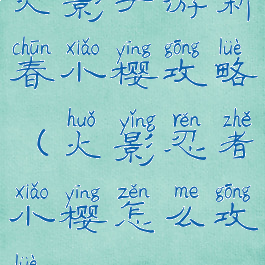 火影手游新
chūn xiǎo yīng gōng lüè
春小樱攻略
huǒ yǐng rén zhě
（火影忍者
xiǎo yīng zěn me gōng
小樱怎么攻
lüè